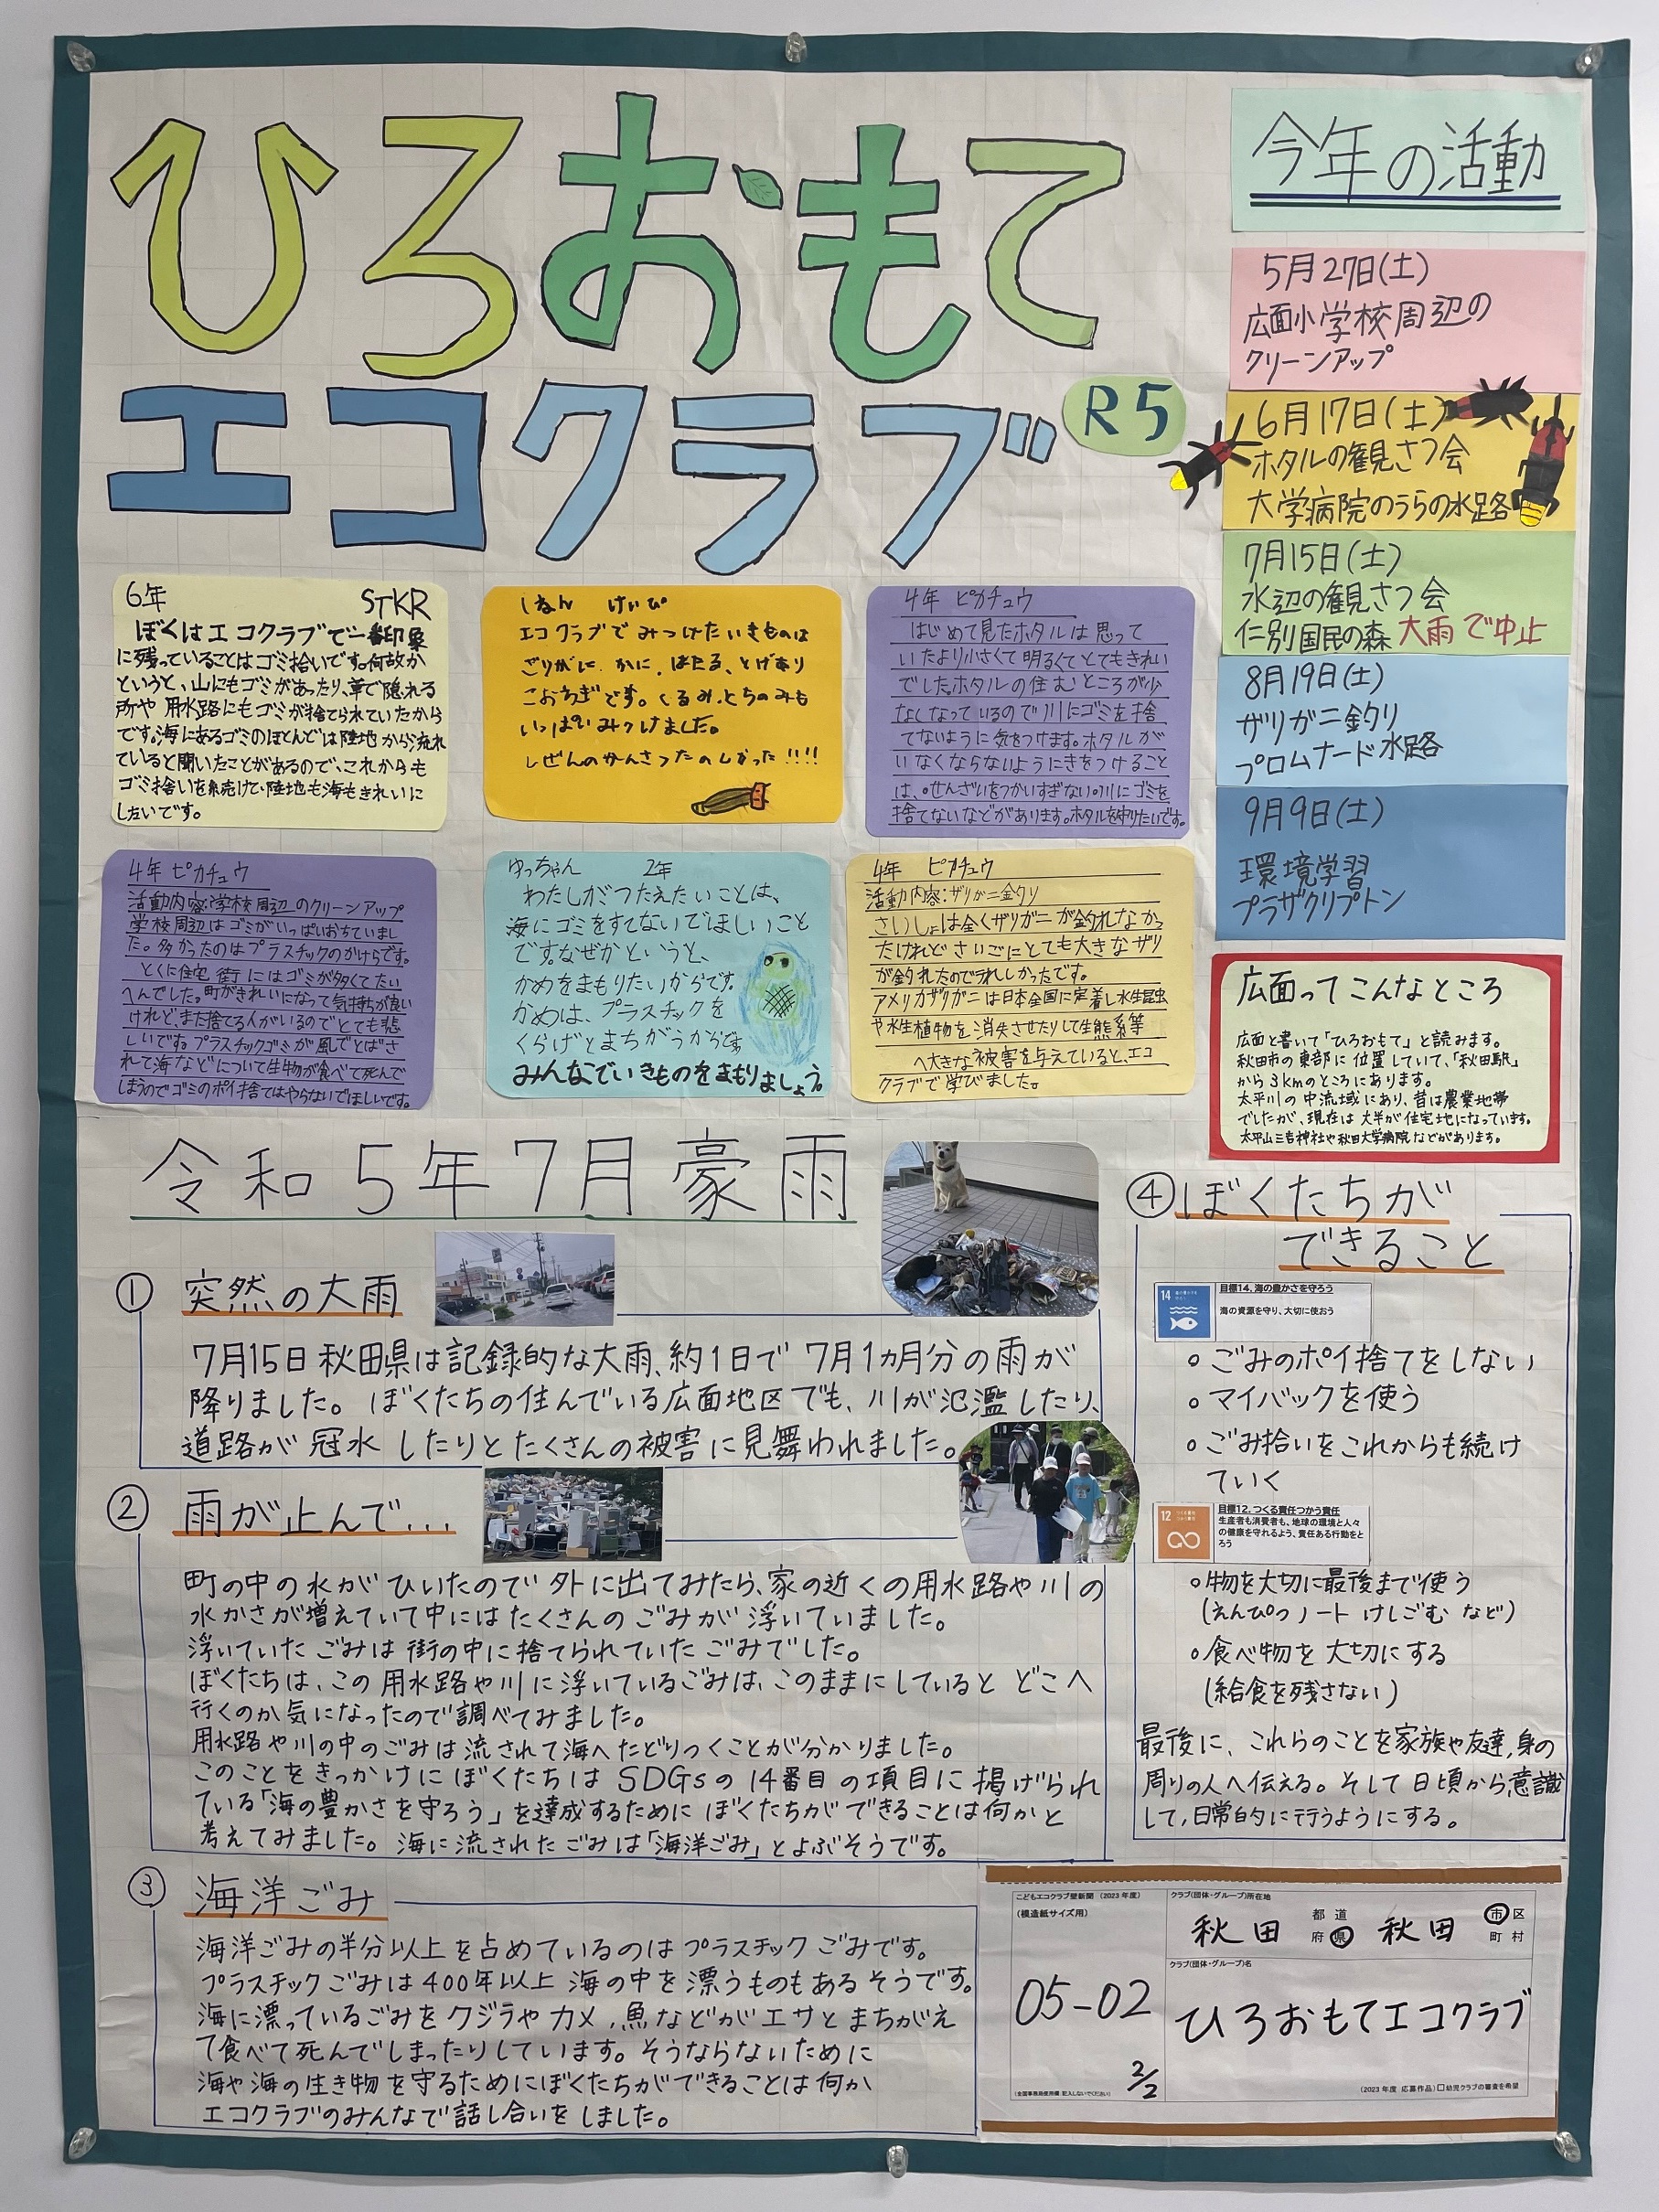 ひろおもて
エコクラブ
R5
今年の活動
5月27日(土)
広面小学校周辺の
クリーンアップ
6月17日(土)
ホタルの観さつ会
大学病院のうらの水路
7月15日(土)
水辺の観さつ会
仁別国民の森 大雨で中止
8月19日(土)
ザリガニ釣り
プロムナード水路
9月9日(土)
環境学習
プラザクリプトン
6年 STKR
ぼくはエコクラブで一番印象
に残っていることはゴミ拾いです。何故か
というと、山にもゴミがあったり、草で隠れる
所や用水路にもゴミが捨てられていたから
です。海にあるゴミのほとんどは陸地から流れ
ていると聞いたことがあるので、これからも
ゴミ拾いを続けて、陸地も海もきれいに
したいです。
1ねん けいぴ
エコクラブでみつけたいきものは
ざりがに、かに、ほたる、とげあり
こおろぎです。くるみ、とちのみも
いっぱいみつけました。
しぜんのかんさつたのしかった!!!!
4年 ピカチュウ
はじめて見たホタルは思って
いたより小さくて明るくてとてもきれい
でした。ホタルの住むところが少
なくなっているので川にゴミを捨
てないように気をつけます。ホタルが
いなくならないようにきをつけること
は、。せんざいをつかいすぎない。川にゴミを
捨てないなどがあります。ホタルを守りたいです。
4年 ピカチュウ
活動内容:学校周辺のクリーンアップ
学校周辺はゴミがいっぱいおちていまし
た。多かったのはプラスチックのかけらです。
とくに住宅街にはゴミが多くてたい
へんでした。町がきれいになって気持ちが良い
けれど、また捨てる人がいるのでとても悲
しいです。プラスチックゴミが風でとばさ
れて海などについて生物が食べて死んで
しまうのでゴミのポイ捨てはやらないでほしいです。
ゆっちゃん 2年
わたしがつたえたいことは、
海にゴミをすてないでほしいこと
です。なぜかというと、
かめをまもりたいからです。
かめは、プラスチックを
くらげとまちがうからです。
みんなでいきものをまもりましょう。
4年 ピカチュウ
活動内容:ザリガニ釣り
さいしょは全くザリガニが釣れなかっ
たけれどさいごにとても大きなザリ
が釣れたのでうれしかったです。
アメリカザリガニは日本全国に定着し水生昆虫
や水生植物を消失させたりして生態系等
へ大きな被害を与えていると、エコ
クラブで学びました。
広面ってこんなところ
広面と書いて「ひろおもて」と読みます。
秋田市の東部に位置していて、「秋田駅」
から3kmのところにあります。
太平川の中流域にあり、昔は農業地帯
でしたが、現在は大半が住宅地になっています。
太平山三吉神社や秋田大学病院などがあります。
令和5年7月豪雨
① 突然の大雨
7月15日秋田県は記録的な大雨、約1日で7月1ヵ月分の雨が
降りました。ぼくたちの住んでいる広面地区でも、川が氾濫したり、
道路が冠水したりとたくさんの被害に見舞われました。
② 雨が止んで...
町の中の水がひいたので外に出てみたら、家の近くの用水路や川の
水かさが増えていて中にはたくさんのごみが浮いていました。
浮いていたごみは街の中に捨てられていたごみでした。
ぼくたちは、この用水路や川に浮いているごみは、このままにしているとどこへ
行くのか気になったので調べてみました。
用水路や川の中のごみは流されて海へたどりつくことが分かりました。
このことをきっかけにぼくたちはSDGsの14番目の項目に掲げられ
ている「海の豊かさを守ろう」を達成するためにぼくたちができることは何かと
考えてみました。海に流されたごみは「海洋ごみ」とよぶそうです。
③ 海洋ごみ
海洋ごみの半分以上を占めているのはプラスチックごみです。
プラスチックごみは400年以上海の中を漂うものもあるそうです。
海に漂っているごみをクジラやカメ、魚などがエサとまちがえ
て食べて死んでしまったりしています。そうならないために
海や海の生き物を守るためにぼくたちができることは何か
エコクラブのみんなで話し合いをしました。
④ ぼくたちが
できること
14
目標14. 海の豊かさを守ろう
海の資源を守り、大切に使おう
。ごみのポイ捨てをしない
。マイバックを使う
。ごみ拾いをこれからも続け
ていく
12 つくる責任つかう責任
目標12. つくる責任つかう責任
生産者も消費者も、地球の環境と人々
の健康を守れるよう、責任ある行動をと
ろう
。物を大切に最後まで使う
(えんぴつ ノート けしごむ など)
。食べ物を大切にする
(給食を残さない)
最後に、これらのことを家族や友達、身の
周りの人へ伝える。そして日頃から意識
して、日常的に行うようにする。
こどもエコクラブ壁新聞 (2023年度)
(模造紙サイズ用)
05-02
2/2
(全国事務局使用欄 記入しないでください)
クラブ(団体・グループ)所在地
秋田 都道府県 秋田 市区町村
クラブ(団体・グループ)名
ひろおもてエコクラブ
(2023年度 応募作品) □幼児クラブの審査を希望